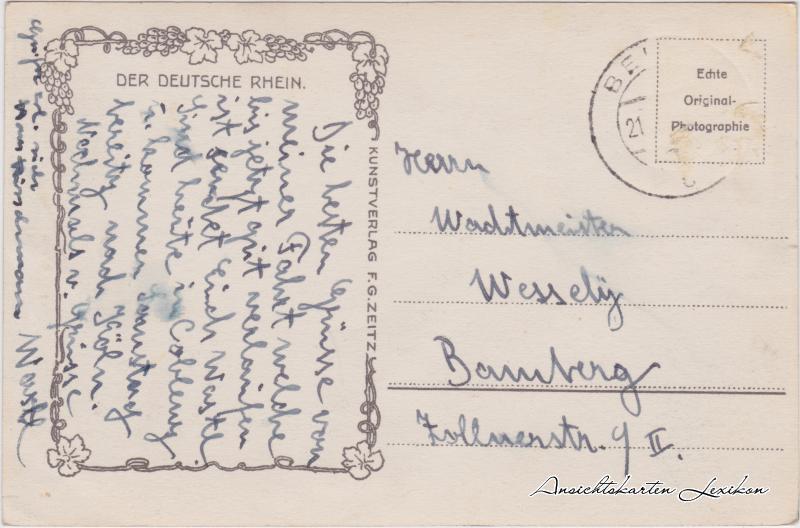 DER DEUTSCHE RHEIN.
Die besten Grüsse von
meiner Fahrt welche
bis jetzt gut verlaufen
ist sendet Euch Wastl
sind heute in Coblenz
u. kommen Samstag
bereits nach Köln.
Nochmals v. Grüsse
Wastl
KUNSTVERLAG F.G.ZEITZ
Echte
Original-
Photographie
21
Herrn
Wachtmeister
Wessely
Bamberg
Zollnerstr. 9 II.
Ansichtskarten Lexikon